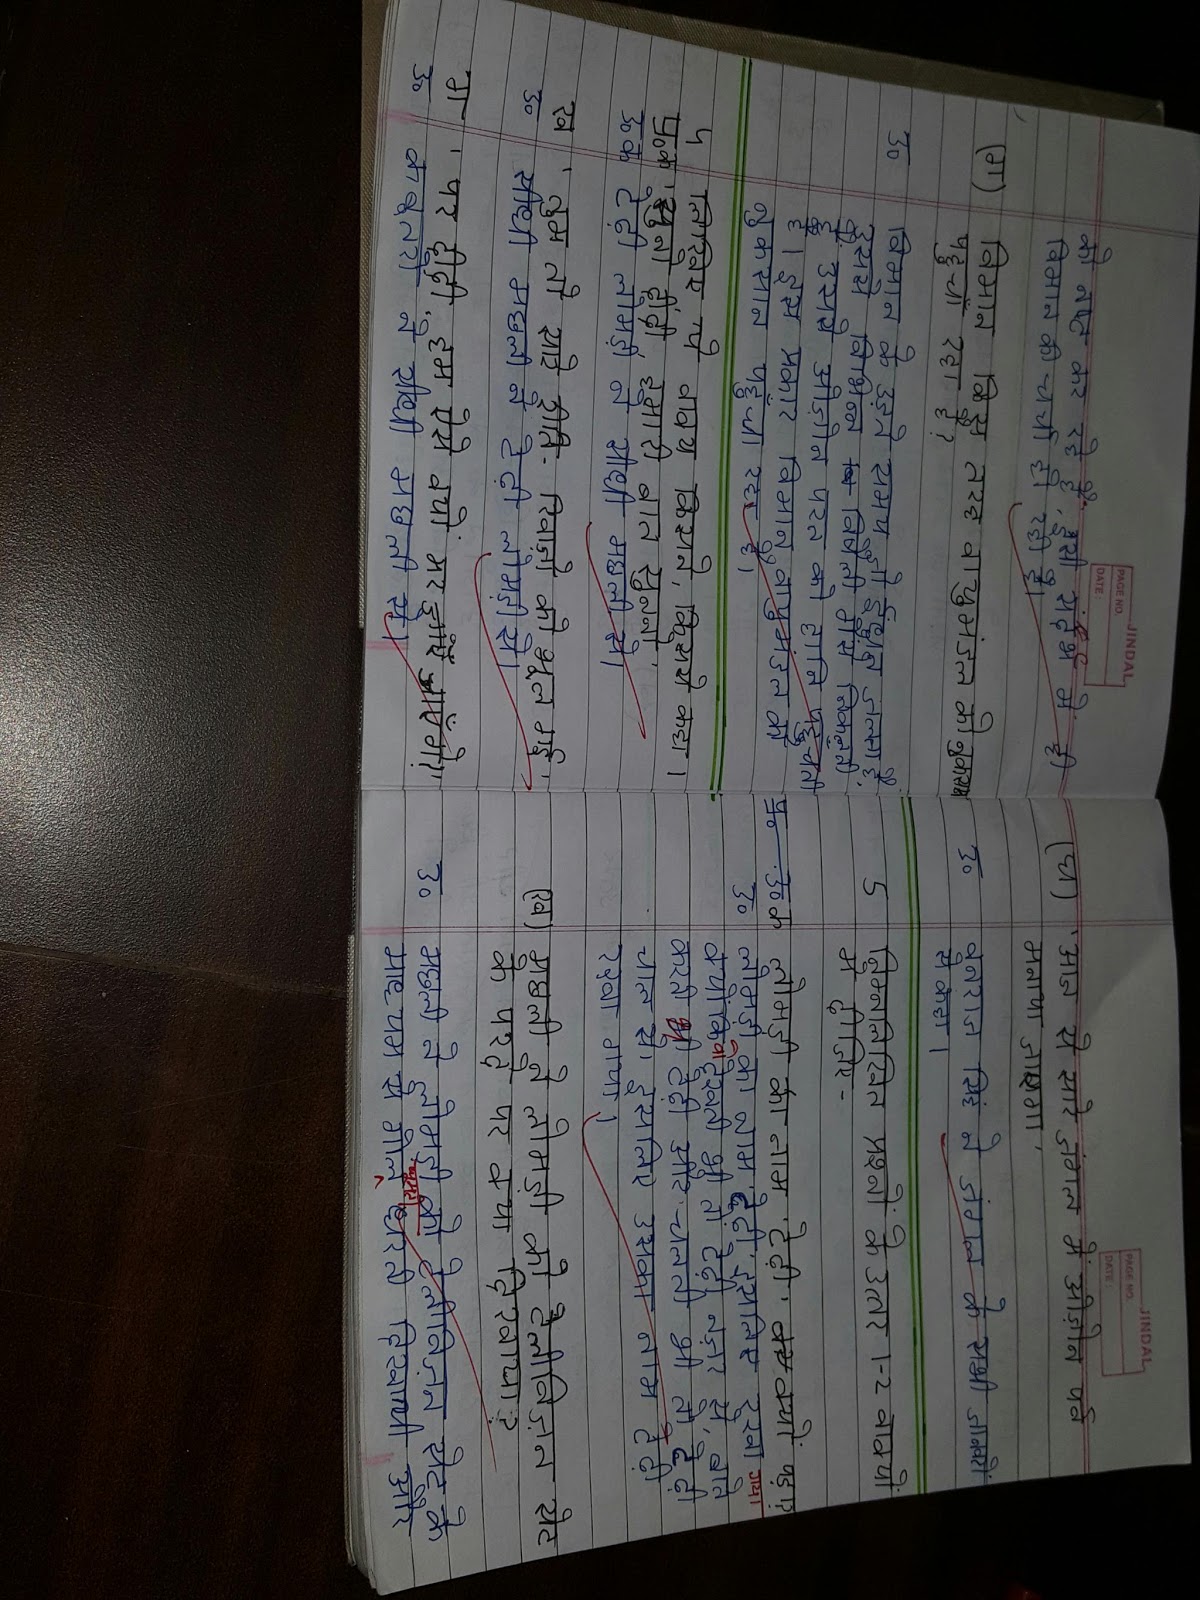 JINDAL
PAGE NO.
DATE:
को नष्ट कर रहे हैं, इसी संदर्भ में ही
विमान की चर्चा हो रही है।
(ग) विमान किस तरह वायुमंडल को नुकसान
पहुचाँ रहा है?
उ० विमान के उड़ते समय जो ईंधन जलता है,
उससे विभिन्न विषैली गैस निकलती
है। उससे ओज़ोन परत को हानि पहुँचती
है। इस प्रकार विमान वायुमंडल को
नुकसान पहुँचा रहा है।
4 लिखिए ये वाक्य किसने, किससे कहा।
प्र०क 'सुनो ढ़ींढ़ी, हमारी बात सुनना'
उ०क टेढ़ी लोमड़ी ने सीधी मछली से।
ख 'तुम तो सारे रीति-रिवाज़ों को भूल गई'
उ० सीधी मछली ने टेढ़ी लोमड़ी से।
ग 'पर ढ़ींढ़ी, हम ऐसे क्यों मर जाएँगे?'
उ० ने सीधी मछली से।
JINDAL
PAGE NO.
DATE:
(घ) 'आज से सारे जंगल में ओज़ोन पर्व
मनाया जाएगा'
उ० सिंह ने जंगल के सभी
से कहा।
5 निम्नलिखित प्रश्नों के उत्तर 1-2 वाक्यों
में दीजिए-
प्र० उ०क लोमड़ी का नाम 'टेढ़ी' क्यों पड़ा?
उ० लोमड़ी का नाम 'टेढ़ी' इसलिए रखा गया।
क्योंकि वो देखती थी तो टेढ़ी नज़र से, बातें
करती थी टेढ़ी और चलती थी तो टेढ़ी
चाल से। इसलिए उसका नाम टेढ़ी
रखा गया।
(ख) मछली ने लोमड़ी को टेलीविज़न सेट
के परदे पर क्या दिखाया?
उ० मछली ने लोमड़ी को टेलीविज़न सेट के
माध्यम से गोल धरती दिखायी और